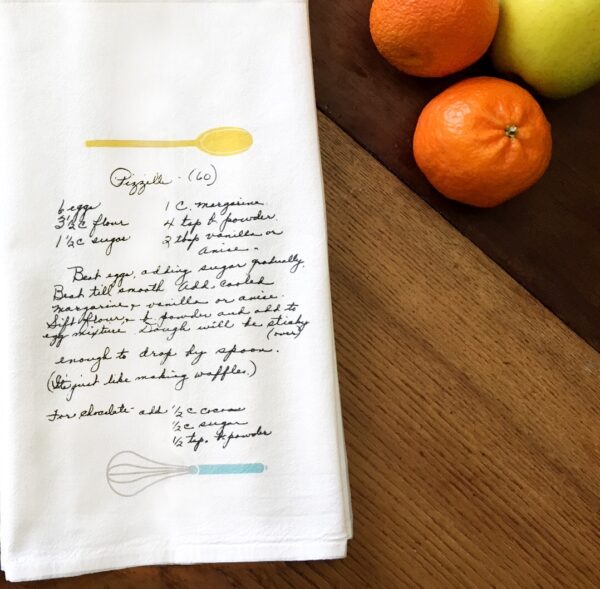 Pizzelle - (60)
6 eggs 1 C. margarine
3 1/2 C flour 4 tsp b. powder
1 1/2 C sugar 2 tbsp vanilla or
anise -
Beat eggs, adding sugar gradually.
Beat till smooth Add cooled
margarine & vanilla or anise.
Sift flour & b. powder and add to
egg mixture Dough will be sticky
(over)
enough to drop by spoon.
(It's just like making waffles.)
For chocolate - add 1/2 C cocoa
1/2 C sugar
1/2 tsp. b. powder